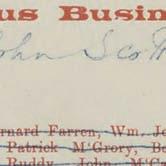 us Busin
John Scott
ernard Farren, Wm. Je
Patrick M'Grory, Be
Ruddy, John M'G